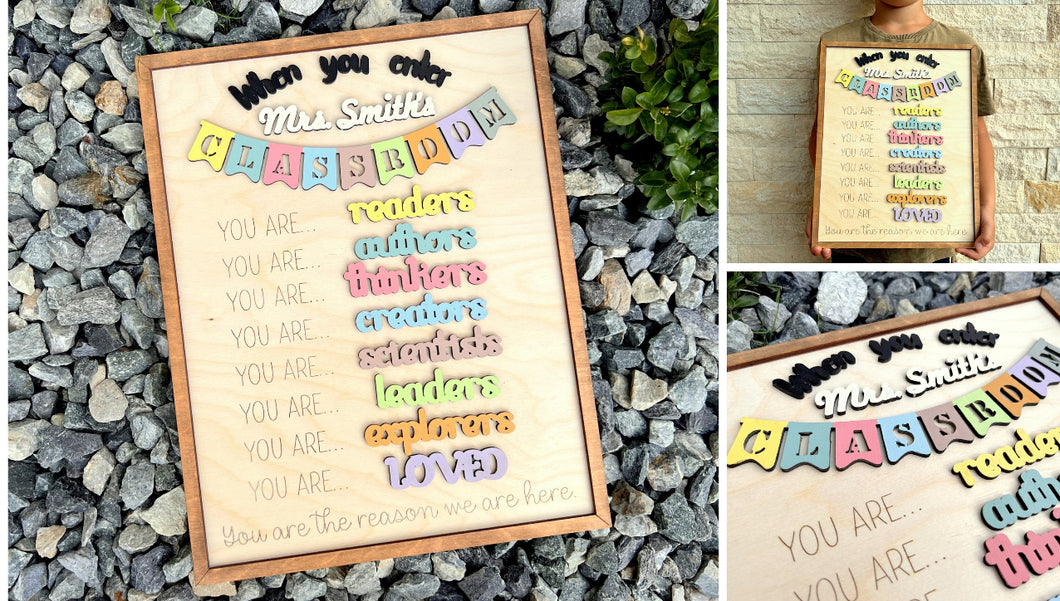 When you enter
Mrs. Smith's
CLASSROOM
YOU ARE... readers
YOU ARE... authors
YOU ARE... thinkers
YOU ARE... creators
YOU ARE... scientists
YOU ARE... leaders
YOU ARE... explorers
YOU ARE... LOVED
You are the reason we are here.
When you enter
Mrs. Smith's
CLASSROOM
YOU ARE... readers
YOU ARE... authors
YOU ARE... thinkers
YOU ARE... creators
YOU ARE... scientists
YOU ARE... leaders
YOU ARE... explorers
YOU ARE... LOVED
You are the reason we are here.
When you enter
Mrs. Smith's
CLASSROOM
YOU ARE... reade
YOU ARE... auth
thin